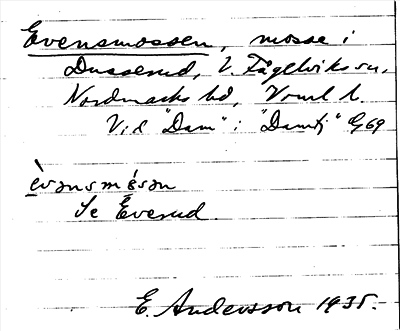 Evensmossen, mosse i
Dusserud, V. Fågelviks sn,
Nordmarks hd, Vrml l.
Vid "Dam" i "Damtj" G69
èvənsmósən
Se Everud
E. Andersson 1935.